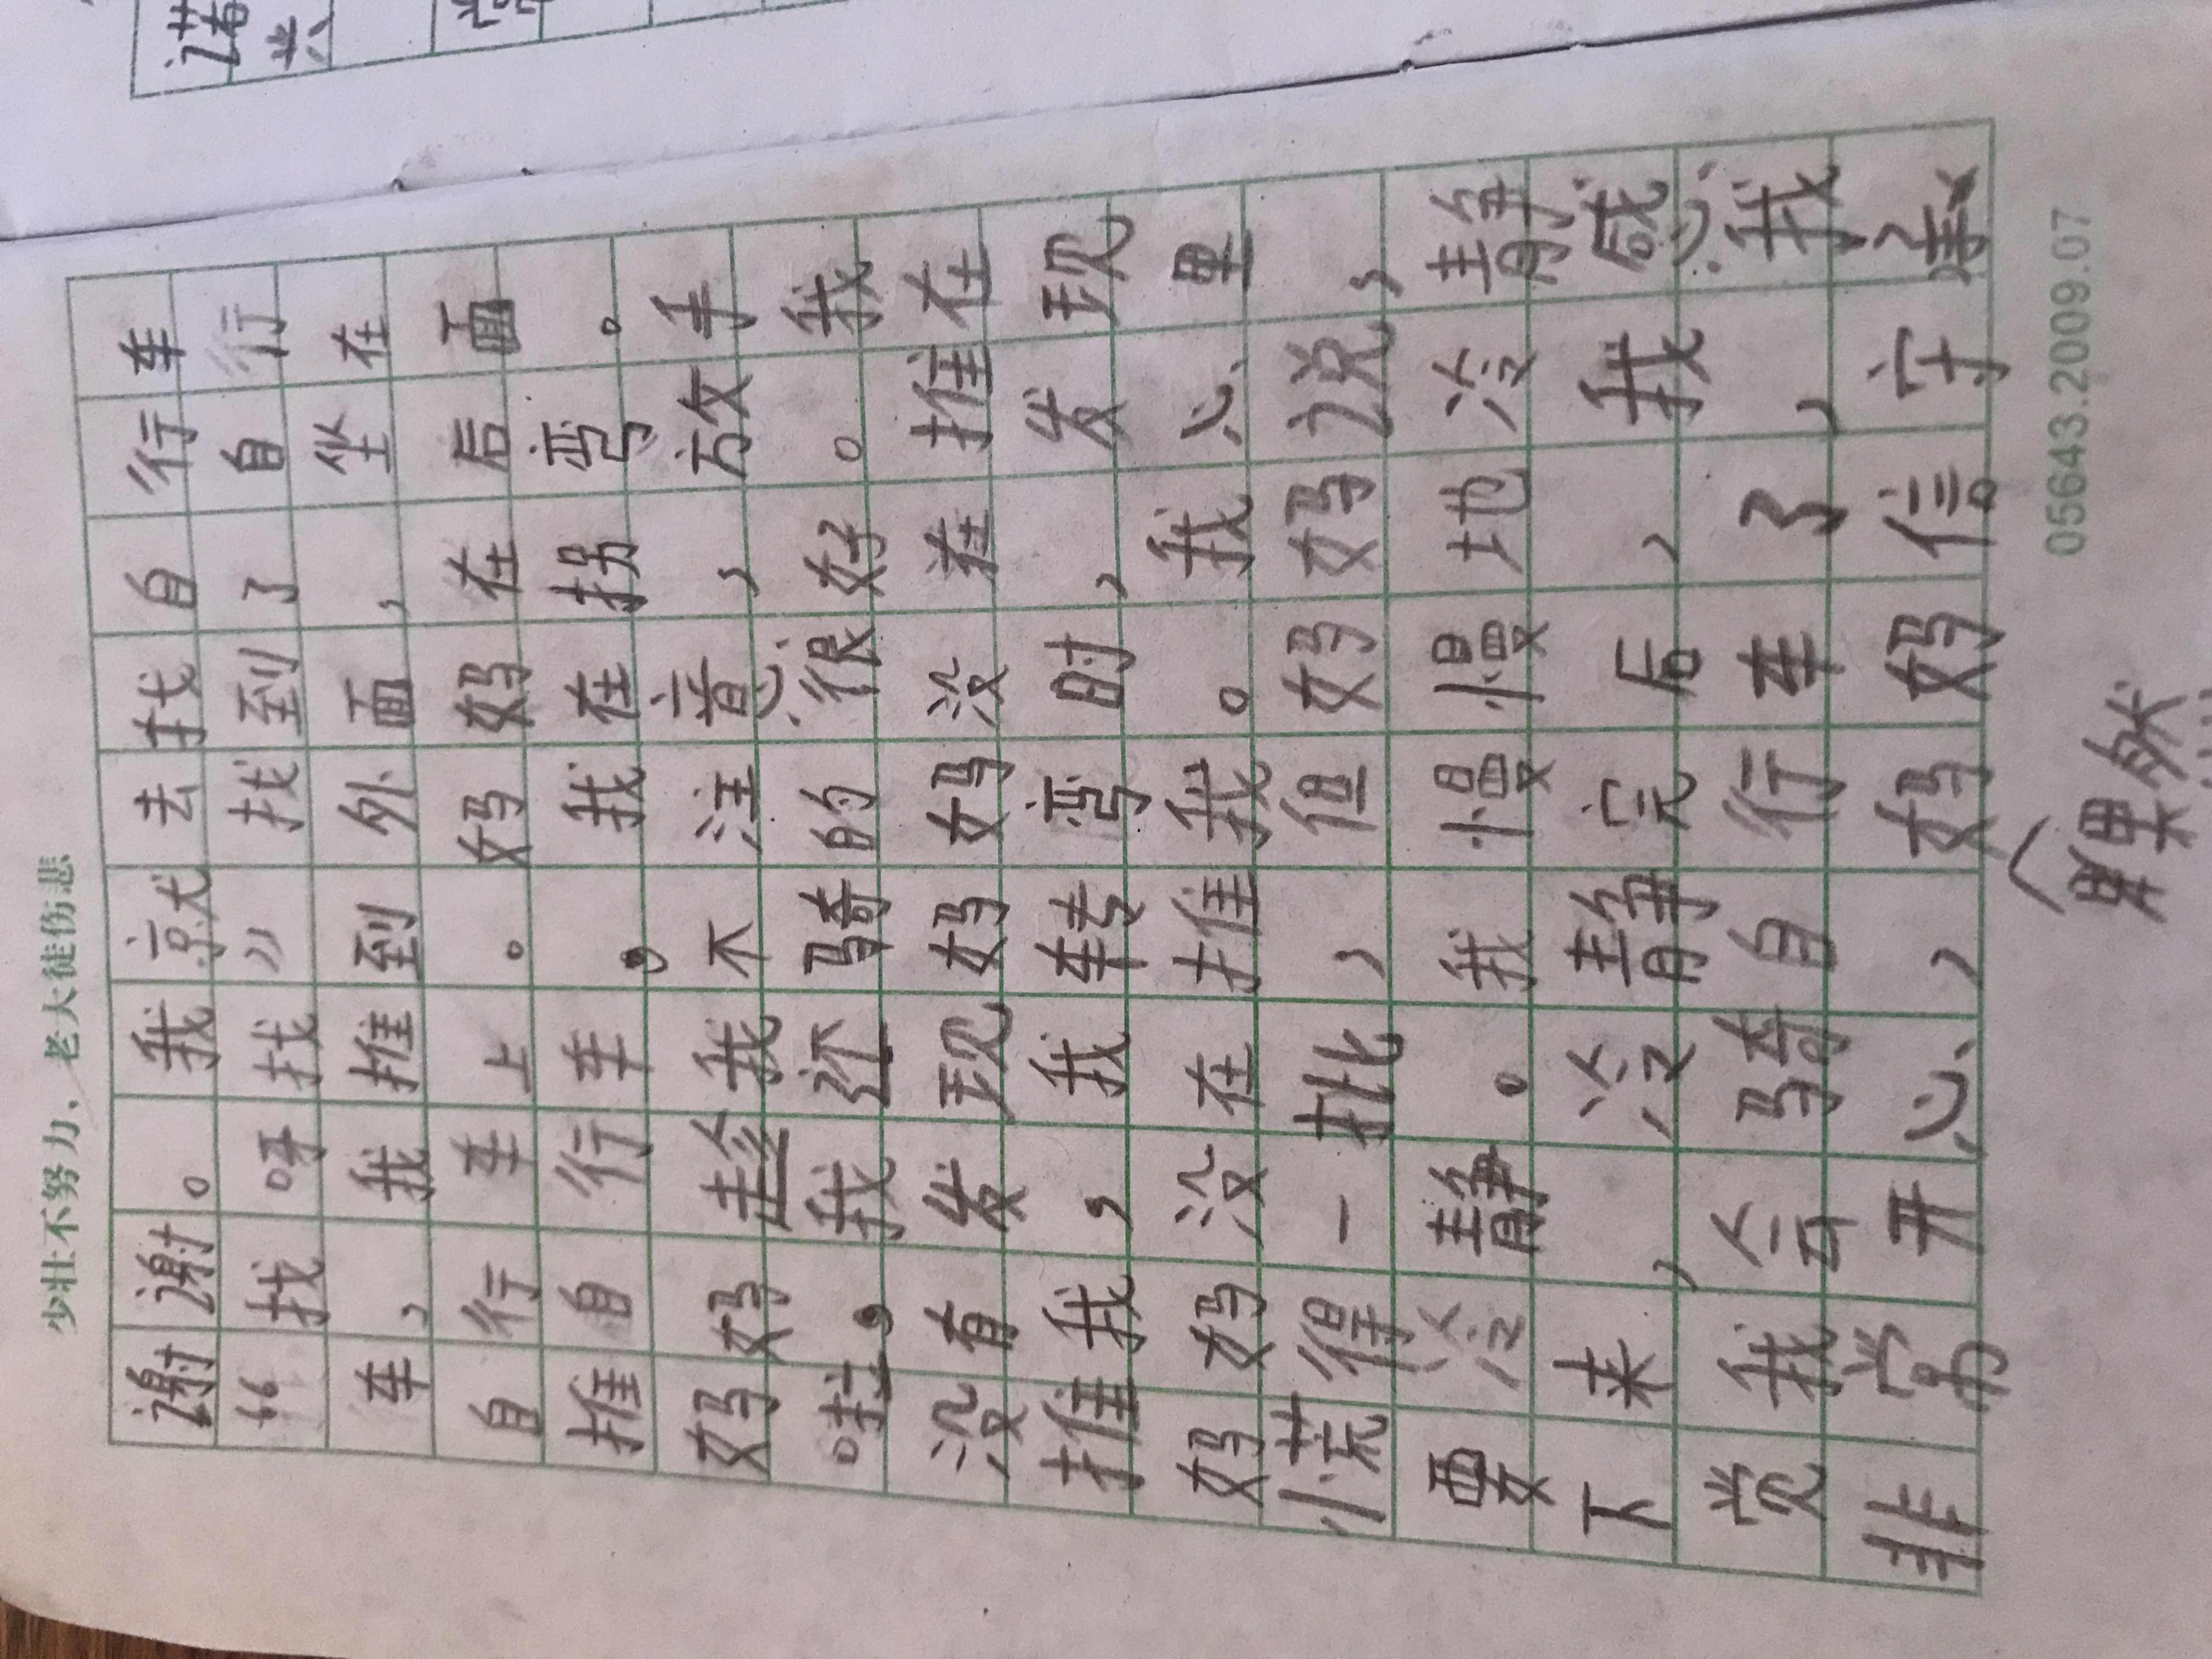 少壮不努力、老大徒伤悲
谢谢。我就去找自行车
“找呀找”找到了自行
车，我推到外面，坐在
自行车上。妈妈在后面
推自行车，我在拐弯。
妈妈趁我不注意，放手
哇，我还骑的很好。我
没有发现妈妈没在推在
推我，我转弯时，发现
妈妈没在推我。我心里
慌得一批，但妈妈说，
要冷静。我慢慢地冷静
下来，冷静完后，我感
觉我会骑自行车了，我
非常开心，妈妈信守承
05643.2009.07
诺
兴